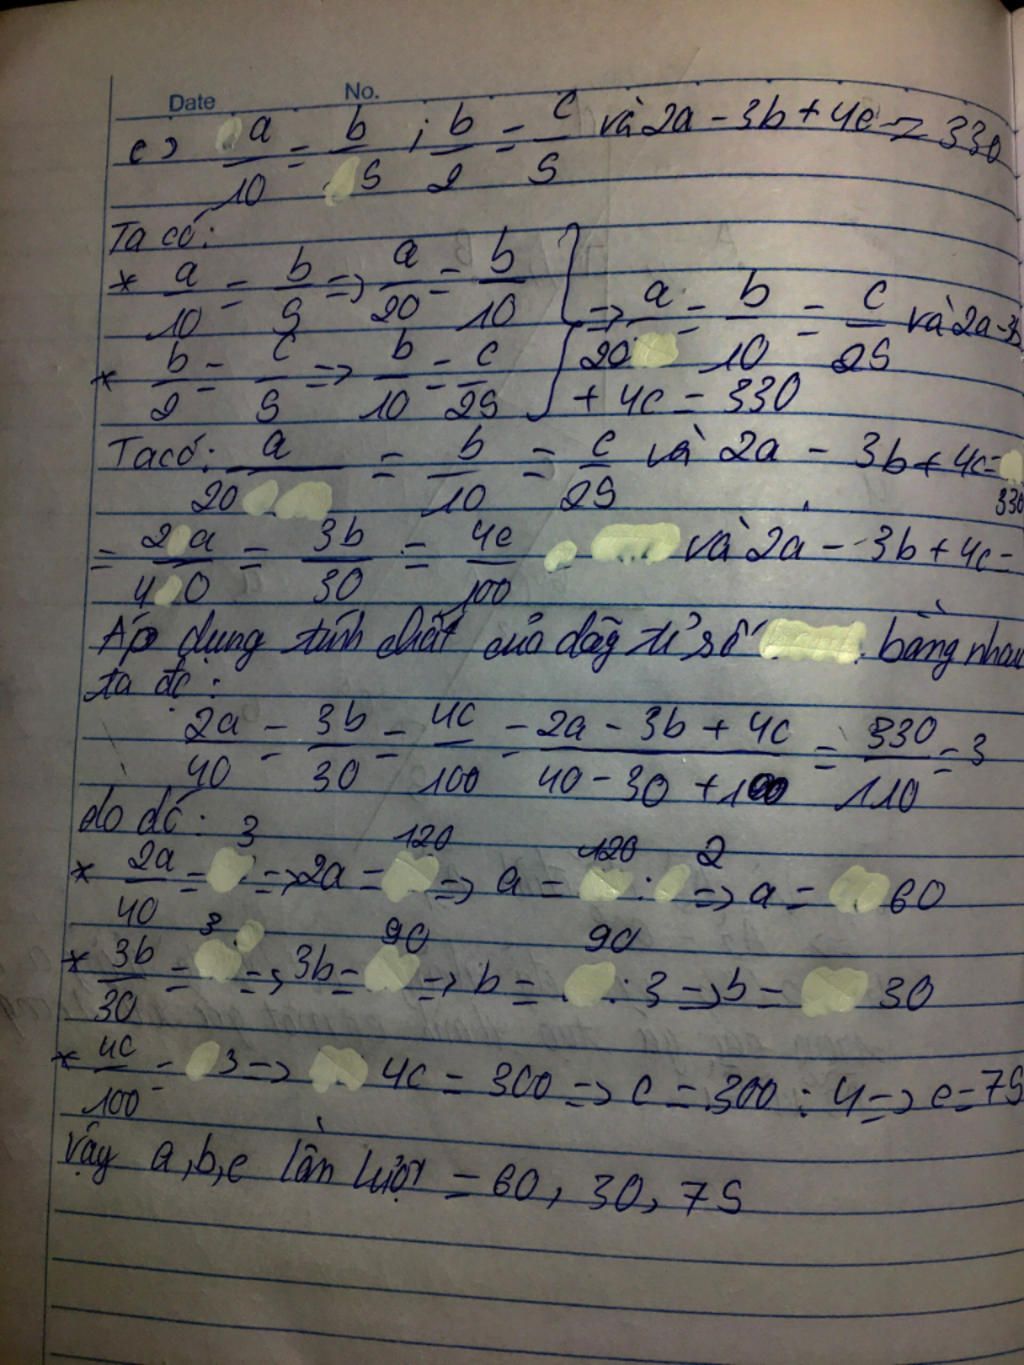 Date No.
c) a/10 = b/5 ; b/2 = c/5 và 2a - 3b + 4c = 330
Ta có:
* a/10 = b/5 => a/20 = b/10
=> a/20 = b/10 = c/25 và 2a - 3b
* b/2 = c/5 => b/10 = c/25
+ 4c = 330
Ta có: a/20 = b/10 = c/25 và 2a - 3b + 4c = 330
= 2a/40 = 3b/30 = 4c/100 và 2a - 3b + 4c =
Áp dụng tính chất của dãy tỉ số bằng nhau
ta đc:
2a/40 = 3b/30 = 4c/100 = 2a - 3b + 4c/40 - 30 + 100 = 330/110 = 3
do đó:
* 2a/40 = 3 => 2a = 120 => a = 120 : 2 => a = 60
* 3b/30 = 3 => 3b = 90 => b = 90 : 3 => b = 30
* 4c/100 = 3 => 4c = 300 => c = 300 : 4 => c = 75
Vậy a, b, c lần lượt = 60, 30, 75